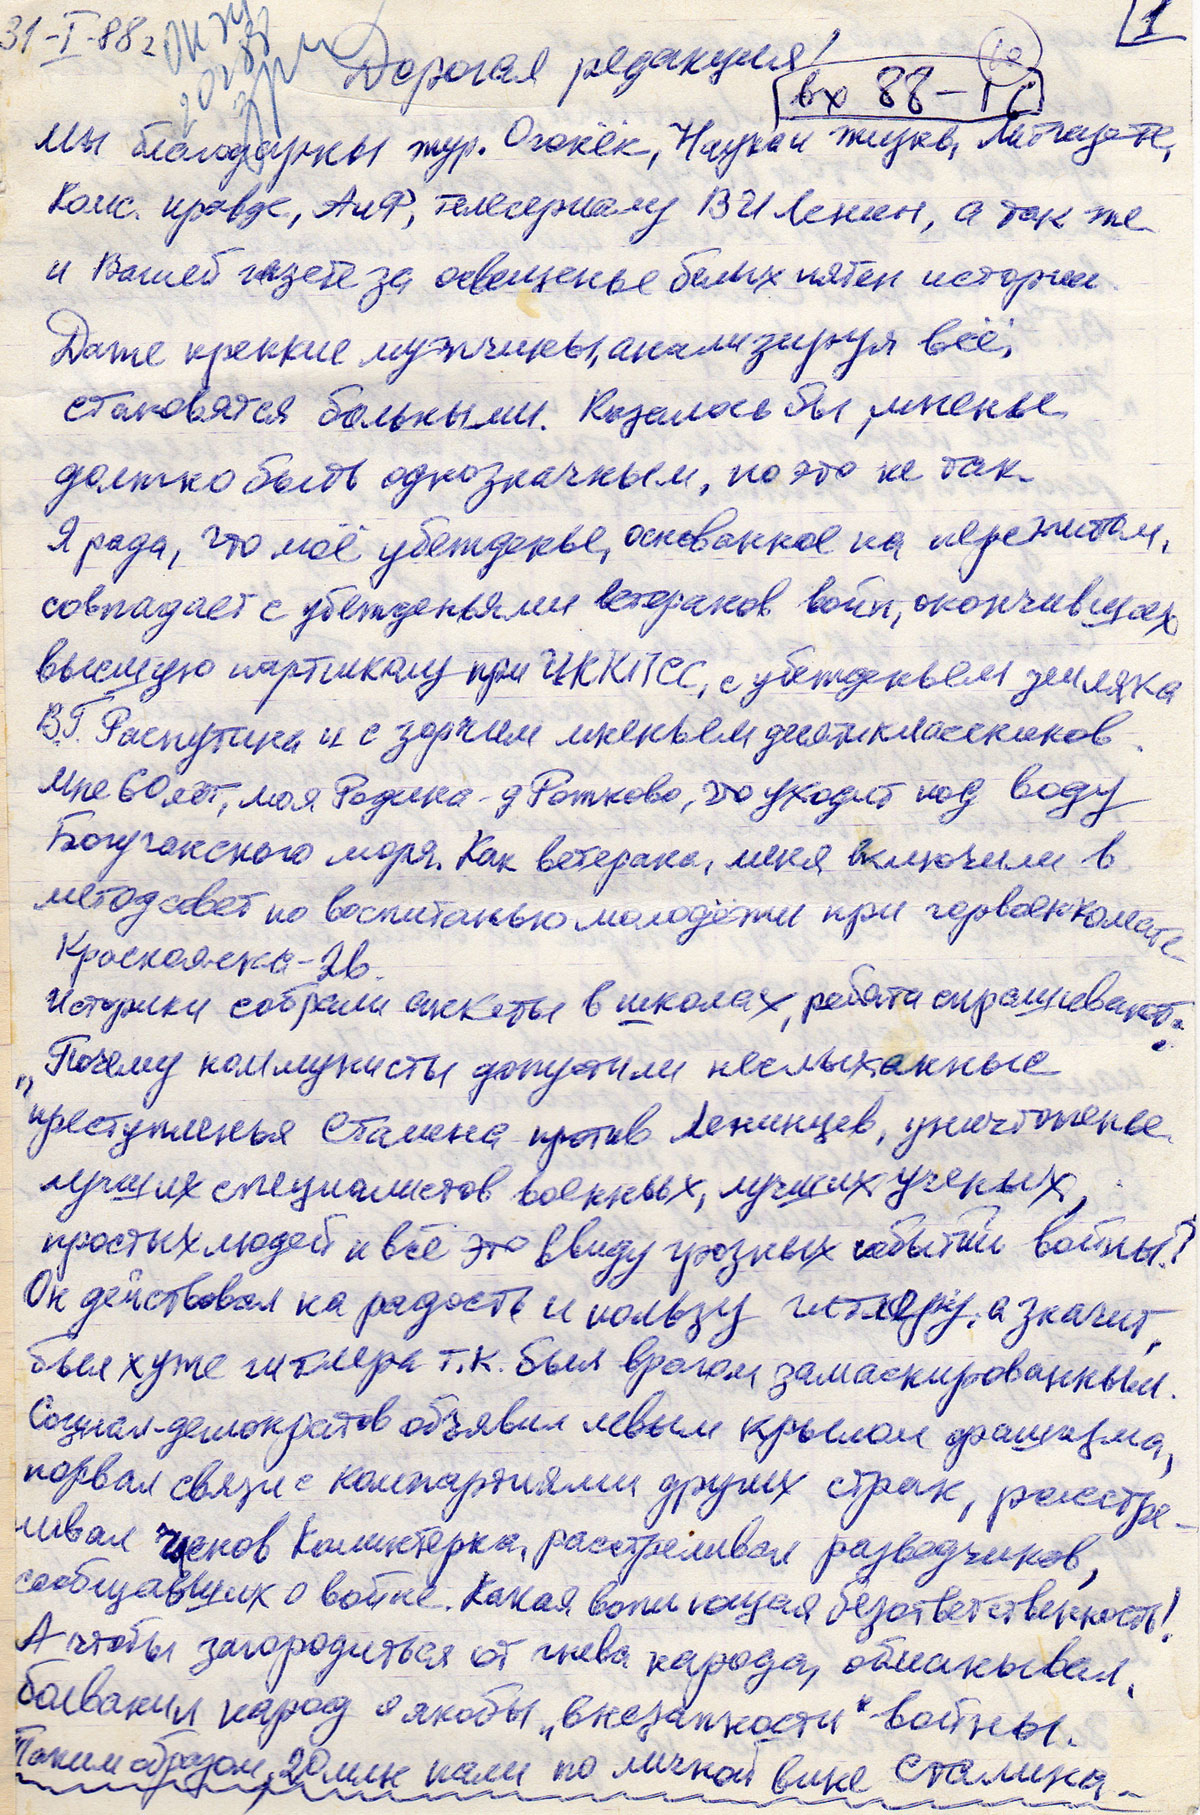 31-I-88г
1
Дорогая редакция!
вх 88-
Мы благодарны жур. Огонёк, Наука и жизнь, Литгазете,
Комс. правде, АиФ, телесериалу В И Ленин, а так же
и Вашей газете за освещенье белых пятен истории.
Даже крепкие мужчины, анализируя всё,
становятся больными. Казалось бы мненье
должно быть однозначным, но это не так.
Я рада, что моё убежденье, основанное на пережитом,
совпадает с убежденьями ветеранов войн, окончивших
высшую партшколу при ЦК КПСС, с убежденьем земляка
В.Г. Распутина и с зорчим мненьем десятиклассников.
Мне 60 лет, моя Родина - д Рожково, что уходит под воду
Богучанского моря. Как ветерана, меня включили в
методсовет по воспитанью молодёжи при горвоенкомате
Красноярска-26.
Историки собрали анкеты в школах, ребята спрашивают:
„Почему коммунисты допустили неслыханные
преступленья Сталина против Ленинцев, уничтоженье
лучших специалистов военных, лучших ученых,
простых людей и всё это ввиду грозных событий войны?
Он действовал на радость и пользу гитлеру, а значит,
был хуже гитлера т.к. был врагом замаскированным.
Социал-демократов объявил левым крылом фашизма,
порвал связи с компартиями других стран, расстре-
ливал членов Коминтерна, расстреливал разведчиков,
сообщавших о войне. Какая вопиющая безответственность!
А чтобы загородиться от гнева народа, обманывал,
болванил народ о якобы „внезапности" войны.
Таким образом, 20 млн пали по личной вине Сталина.